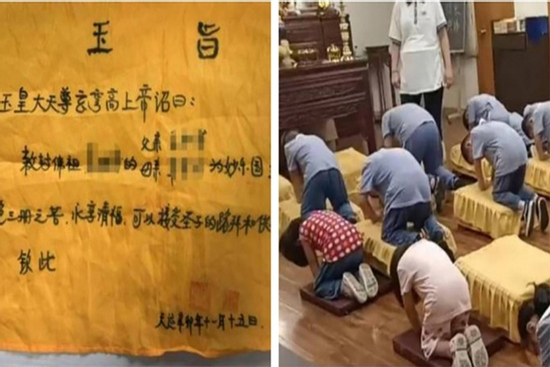 玉旨
玉皇大天尊玄穹高上帝诏曰:
敕封佛祖
的
父亲
母亲
为妙乐国
三册之苦,永享清福,可以接受圣子的跪拜和
钦此
天运辛卯年十一月十五日